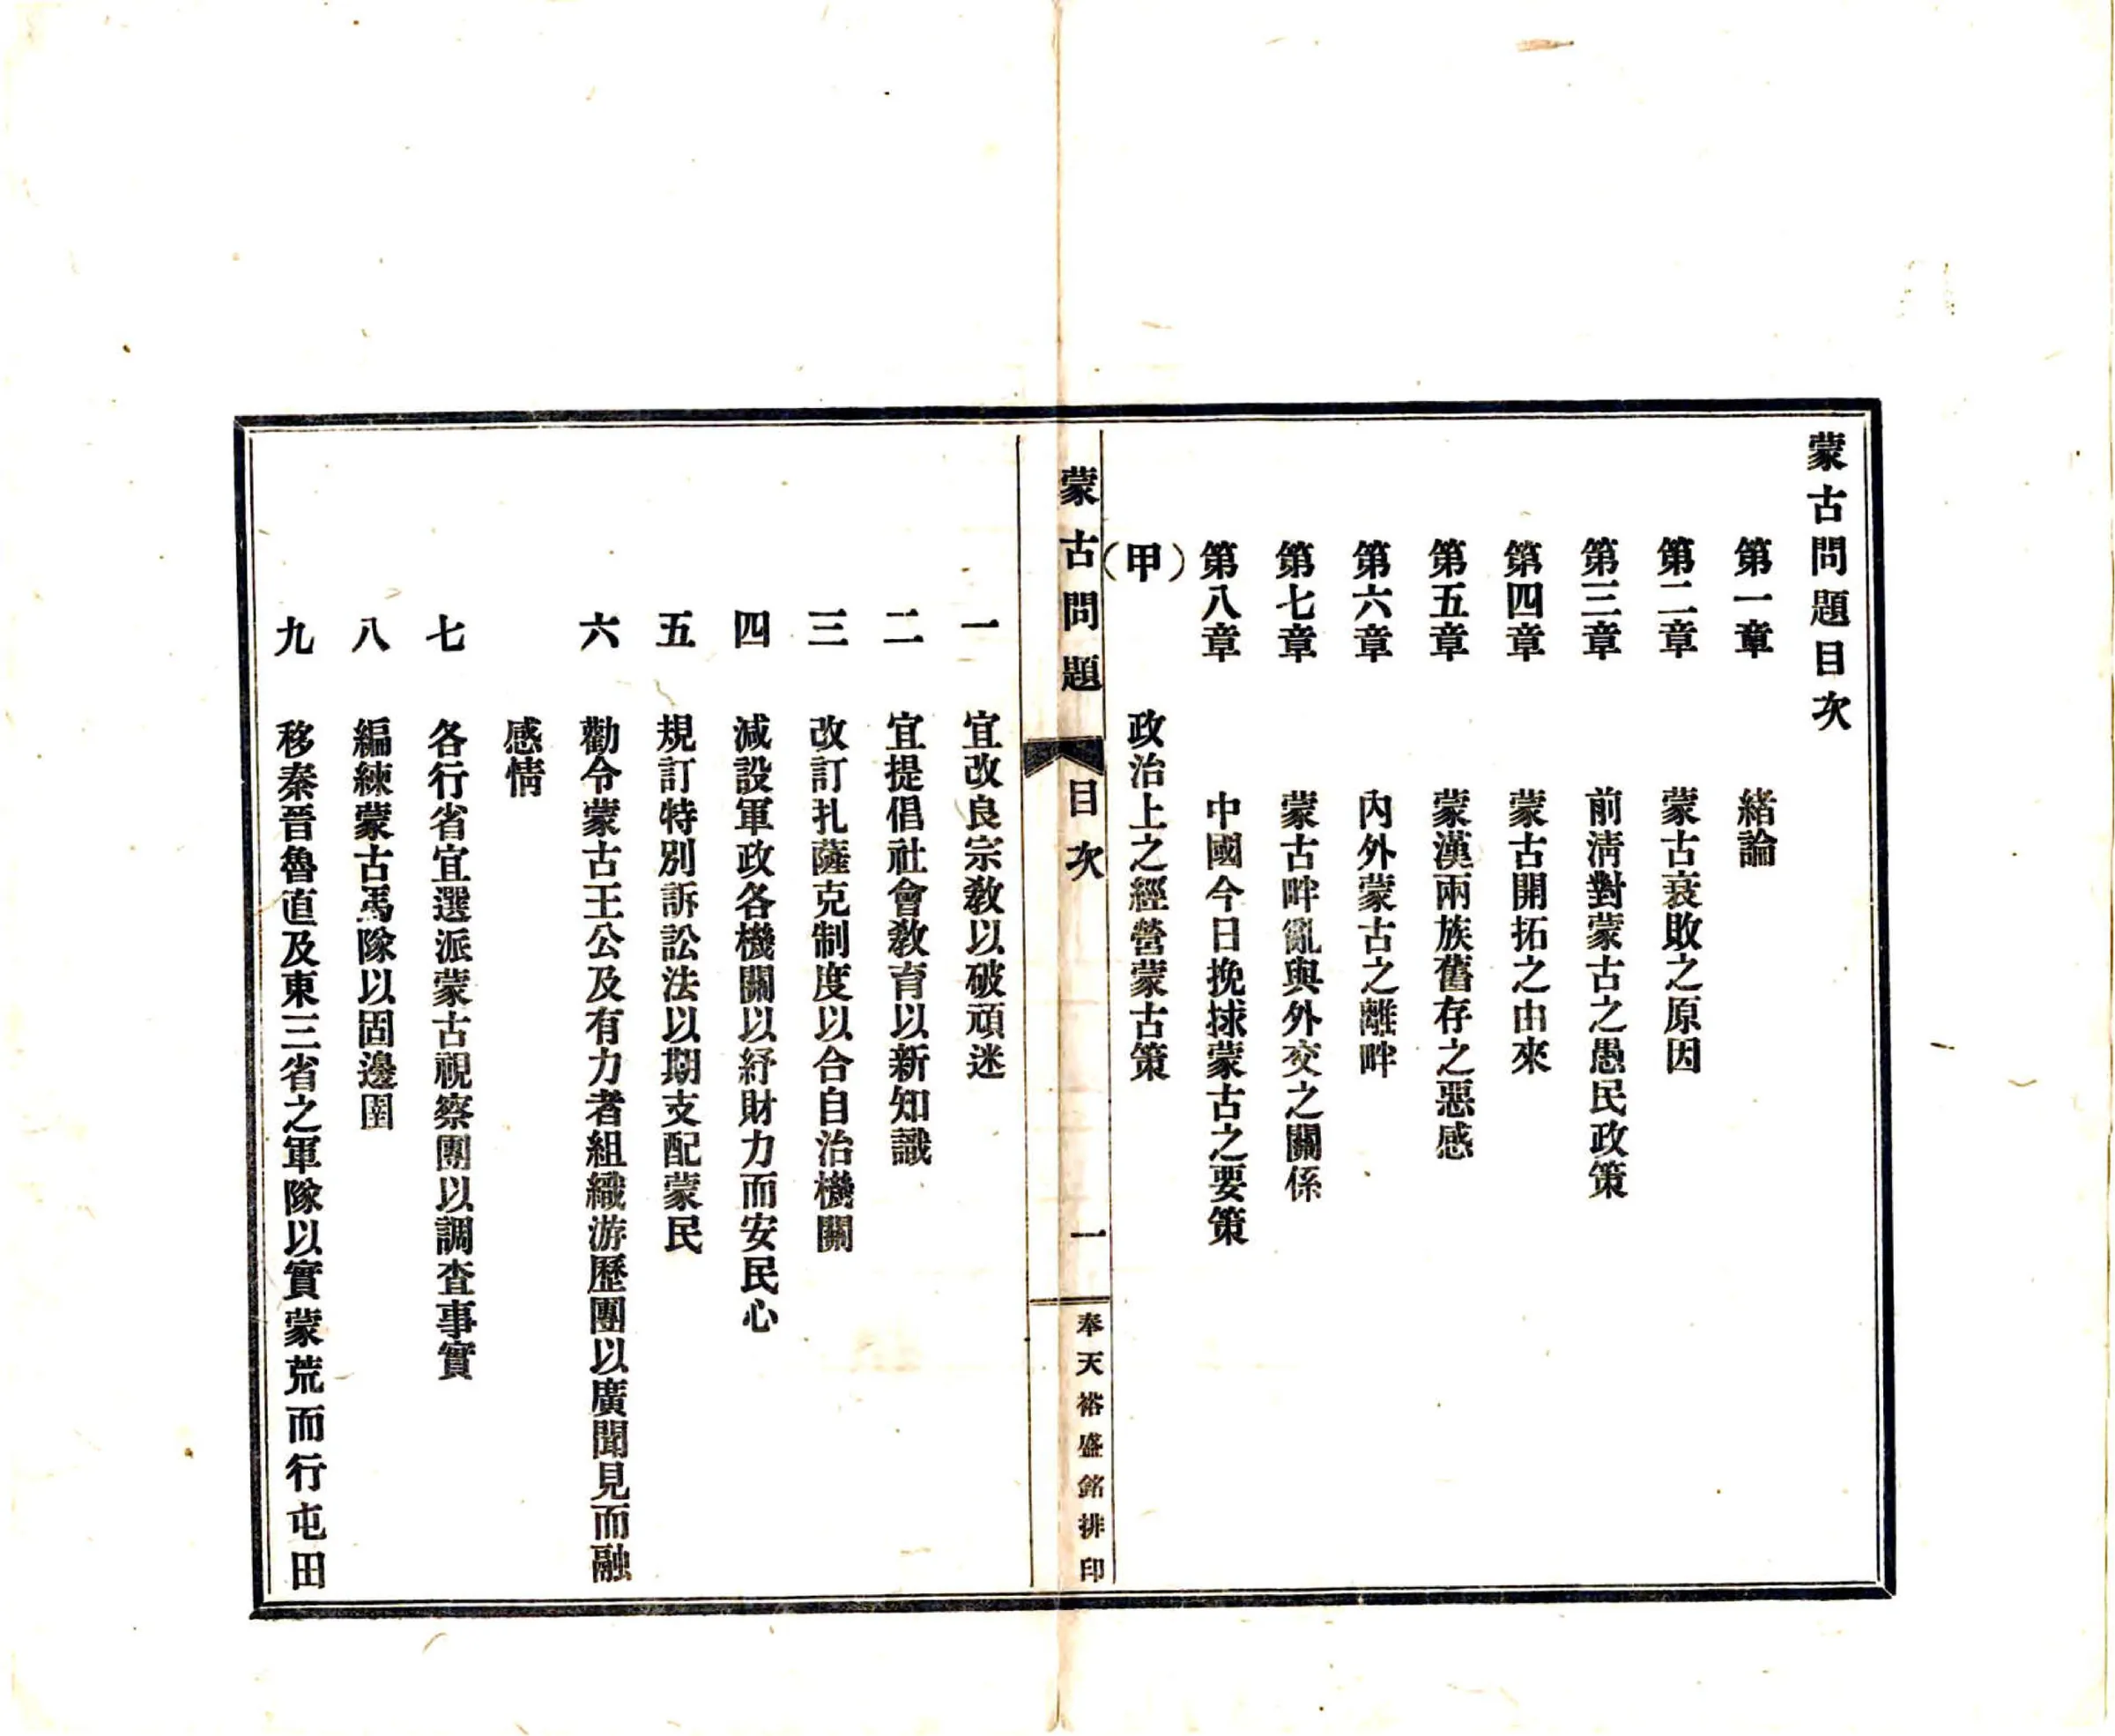 蒙古問題目次
第一章　緒論
第二章　蒙古衰敗之原因
第三章　前清對蒙古之愚民政策
第四章　蒙古開拓之由來
第五章　蒙漢兩族舊存之惡感
第六章　內外蒙古之離畔
第七章　蒙古畔亂與外交之關係
第八章　中國今日挽捄蒙古之要策
（甲）　政治上之經營蒙古策
蒙古問題　目次　一　奉天裕盛銘排印
一　宜改良宗教以破頑迷
二　宜提倡社會教育以新知識
三　改訂扎薩克制度以合自治機關
四　減設軍政各機關以紓財力而安民心
五　規訂特別訴訟法以期支配蒙民
六　勸令蒙古王公及有力者組織游歷團以廣聞見而融
感情
七　各行省宜選派蒙古視察團以調查事實
八　編練蒙古馬隊以固邊圉
九　移秦晉魯直及東三省之軍隊以實蒙荒而行屯田